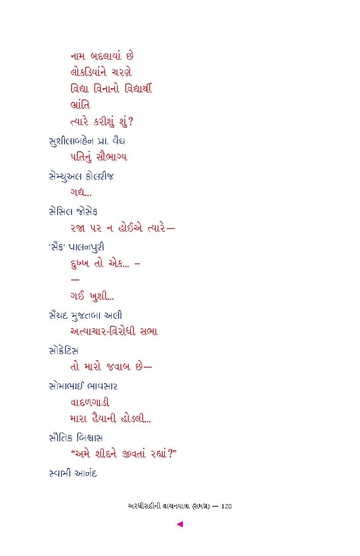 નામ બદલાયાં છે
લોકડિયાંને ચરણે
વિદ્યા વિનાનો વિદ્યાર્થી
ભ્રાંતિ
ત્યારે કરીશું શું?
સુશીલાબહેન પ્રા. વૈદ્ય
પતિનું સૌભાગ્ય
સેમ્યુઅલ કોલરીજ
ગદ્ય...
સેસિલ જોસેફ
રજા પર ન હોઈએ ત્યારે—
'સૈફ' પાલનપુરી
દુઃખ તો એક... –
—
ગઈ ખુશી...
સૈયદ મુજતબા અલી
અત્યાચાર-વિરોધી સભા
સોક્રેટિસ
તો મારો જવાબ છે—
સોમાભાઈ ભાવસાર
વાદળગાડી
મારા હૈયાની હોડલી...
સૌતિક બિશ્વાસ
"અમે શીદને જીવતાં રહ્યાં?"
સ્વામી આનંદ
અરધીસદીની વાચનયાત્રા (સમગ્ર) — 120